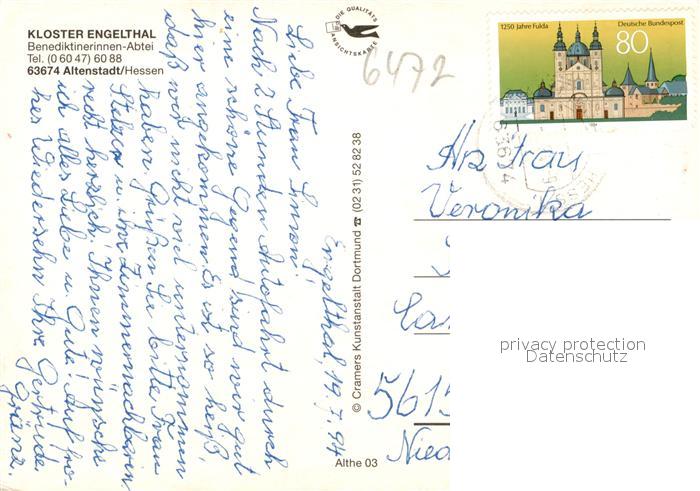 KLOSTER ENGELTHAL
Benediktinerinnen-Abtei
Tel. (0 60 47) 60 88
63674 Altenstadt/Hessen
DIE QUALITÄTS
ANSICHTSKARTE
6472
1250 Jahre Fulda
Deutsche Bundespost
80
Engelthal, 19.7.94
Liebe Frau
Nach 2 Stunden Autofahrt durch
eine schöne Gegend sind wir gut
hier angekommen. Es ist so heiß,
daß wir nicht viel unternommen
haben. Grüßen Sie bitte Frau
u. ihre Zimmernachbarin
recht herzlich! Ihnen wünsche
ich alles Liebe u. Gute! Auf fro-
hes Wiedersehn Ihre Gertrude
© Cramers Kunstanstalt Dortmund ☎ (02 31) 52 82 38
Althe 03
An Frau
Veronika
5615
Nied
privacy protection
Datenschutz